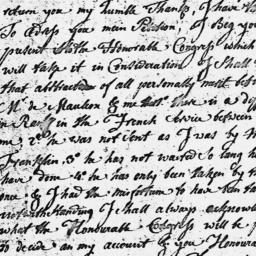 return you my humble Thanks, I have t
To adress you mien Petition, I Beg you
present
Honorable Congress which
will take it in Consideration of Shall
that
of all personally must be
Mr. de Mauleon & me
there is a di
in Rank in the French Service between
me 2º he was not Sent as I was by M
Franklin. 3º he has not wasted So long h
have done 4º he has only been taken by th
one: & I had the misfortune to have been ta
notwithstanding I shall always acknowl
what the Honourable Congress will be p
to decide on my account by you Honoura